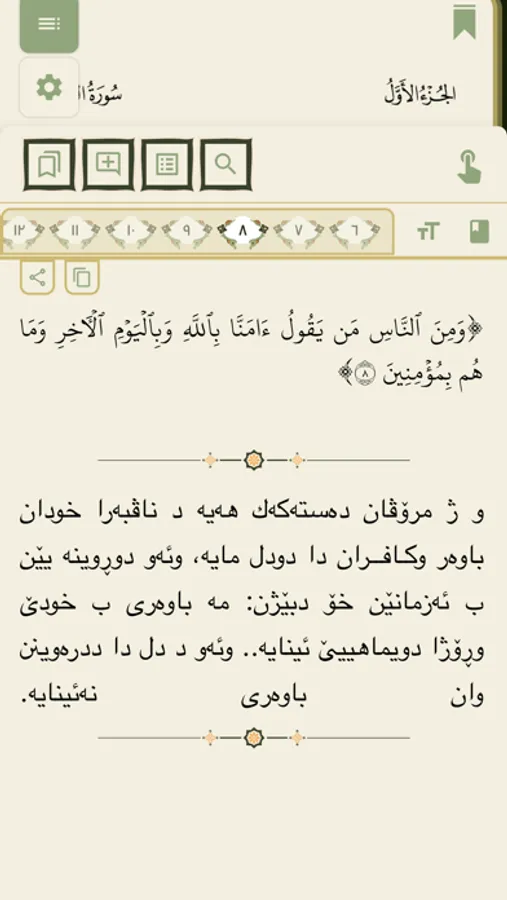 الجُزْءُ الأَوَّلُ
سُورَةُ
٦ ٧ ٨ ٩ ١٠ ١١ ١٢
﴿وَمِنَ ٱلنَّاسِ مَن يَقُولُ ءَامَنَّا بِٱللَّهِ وَبِٱلْيَوْمِ ٱلْآخِرِ وَمَا
هُم بِمُؤْمِنِينَ ٨﴾
و ژ مرۆڤان دەستەكەك هەیە د ناڤبەرا خودان
باوەر وكـافـران دا دودل مایە، وئەو دوڕوینە یێن
ب ئەزمانێن خۆ دبێژن: مە باوەری ب خودێ
وڕۆژا دویماهییێ ئینایە.. وئەو د دل دا ددرەوینن
وان باوەری نەئینایە.